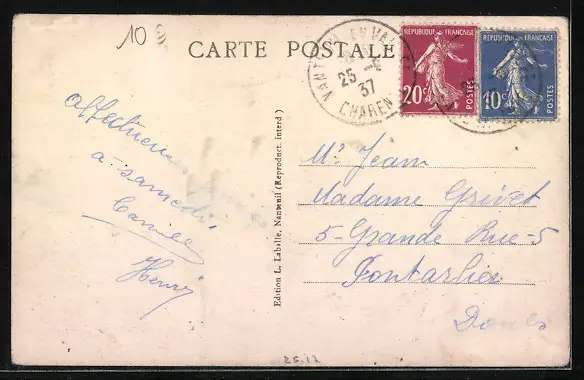 10
CARTE POSTALE
NANTEUIL EN VALLEE
25 -6
37
CHARENTE
RÉPUBLIQUE FRANÇAISE
20c
POSTES
RÉPUBLIQUE FRANÇAISE
10c
POSTES
Affectueuses
à samedi,
Camille
Henri
Edition L. Laballe, Nanteuil (Reproduct. interd.)
Mr Jean
Madame Grivet
5-Grande Rue-5
Pontarlier
Doubs
25.12